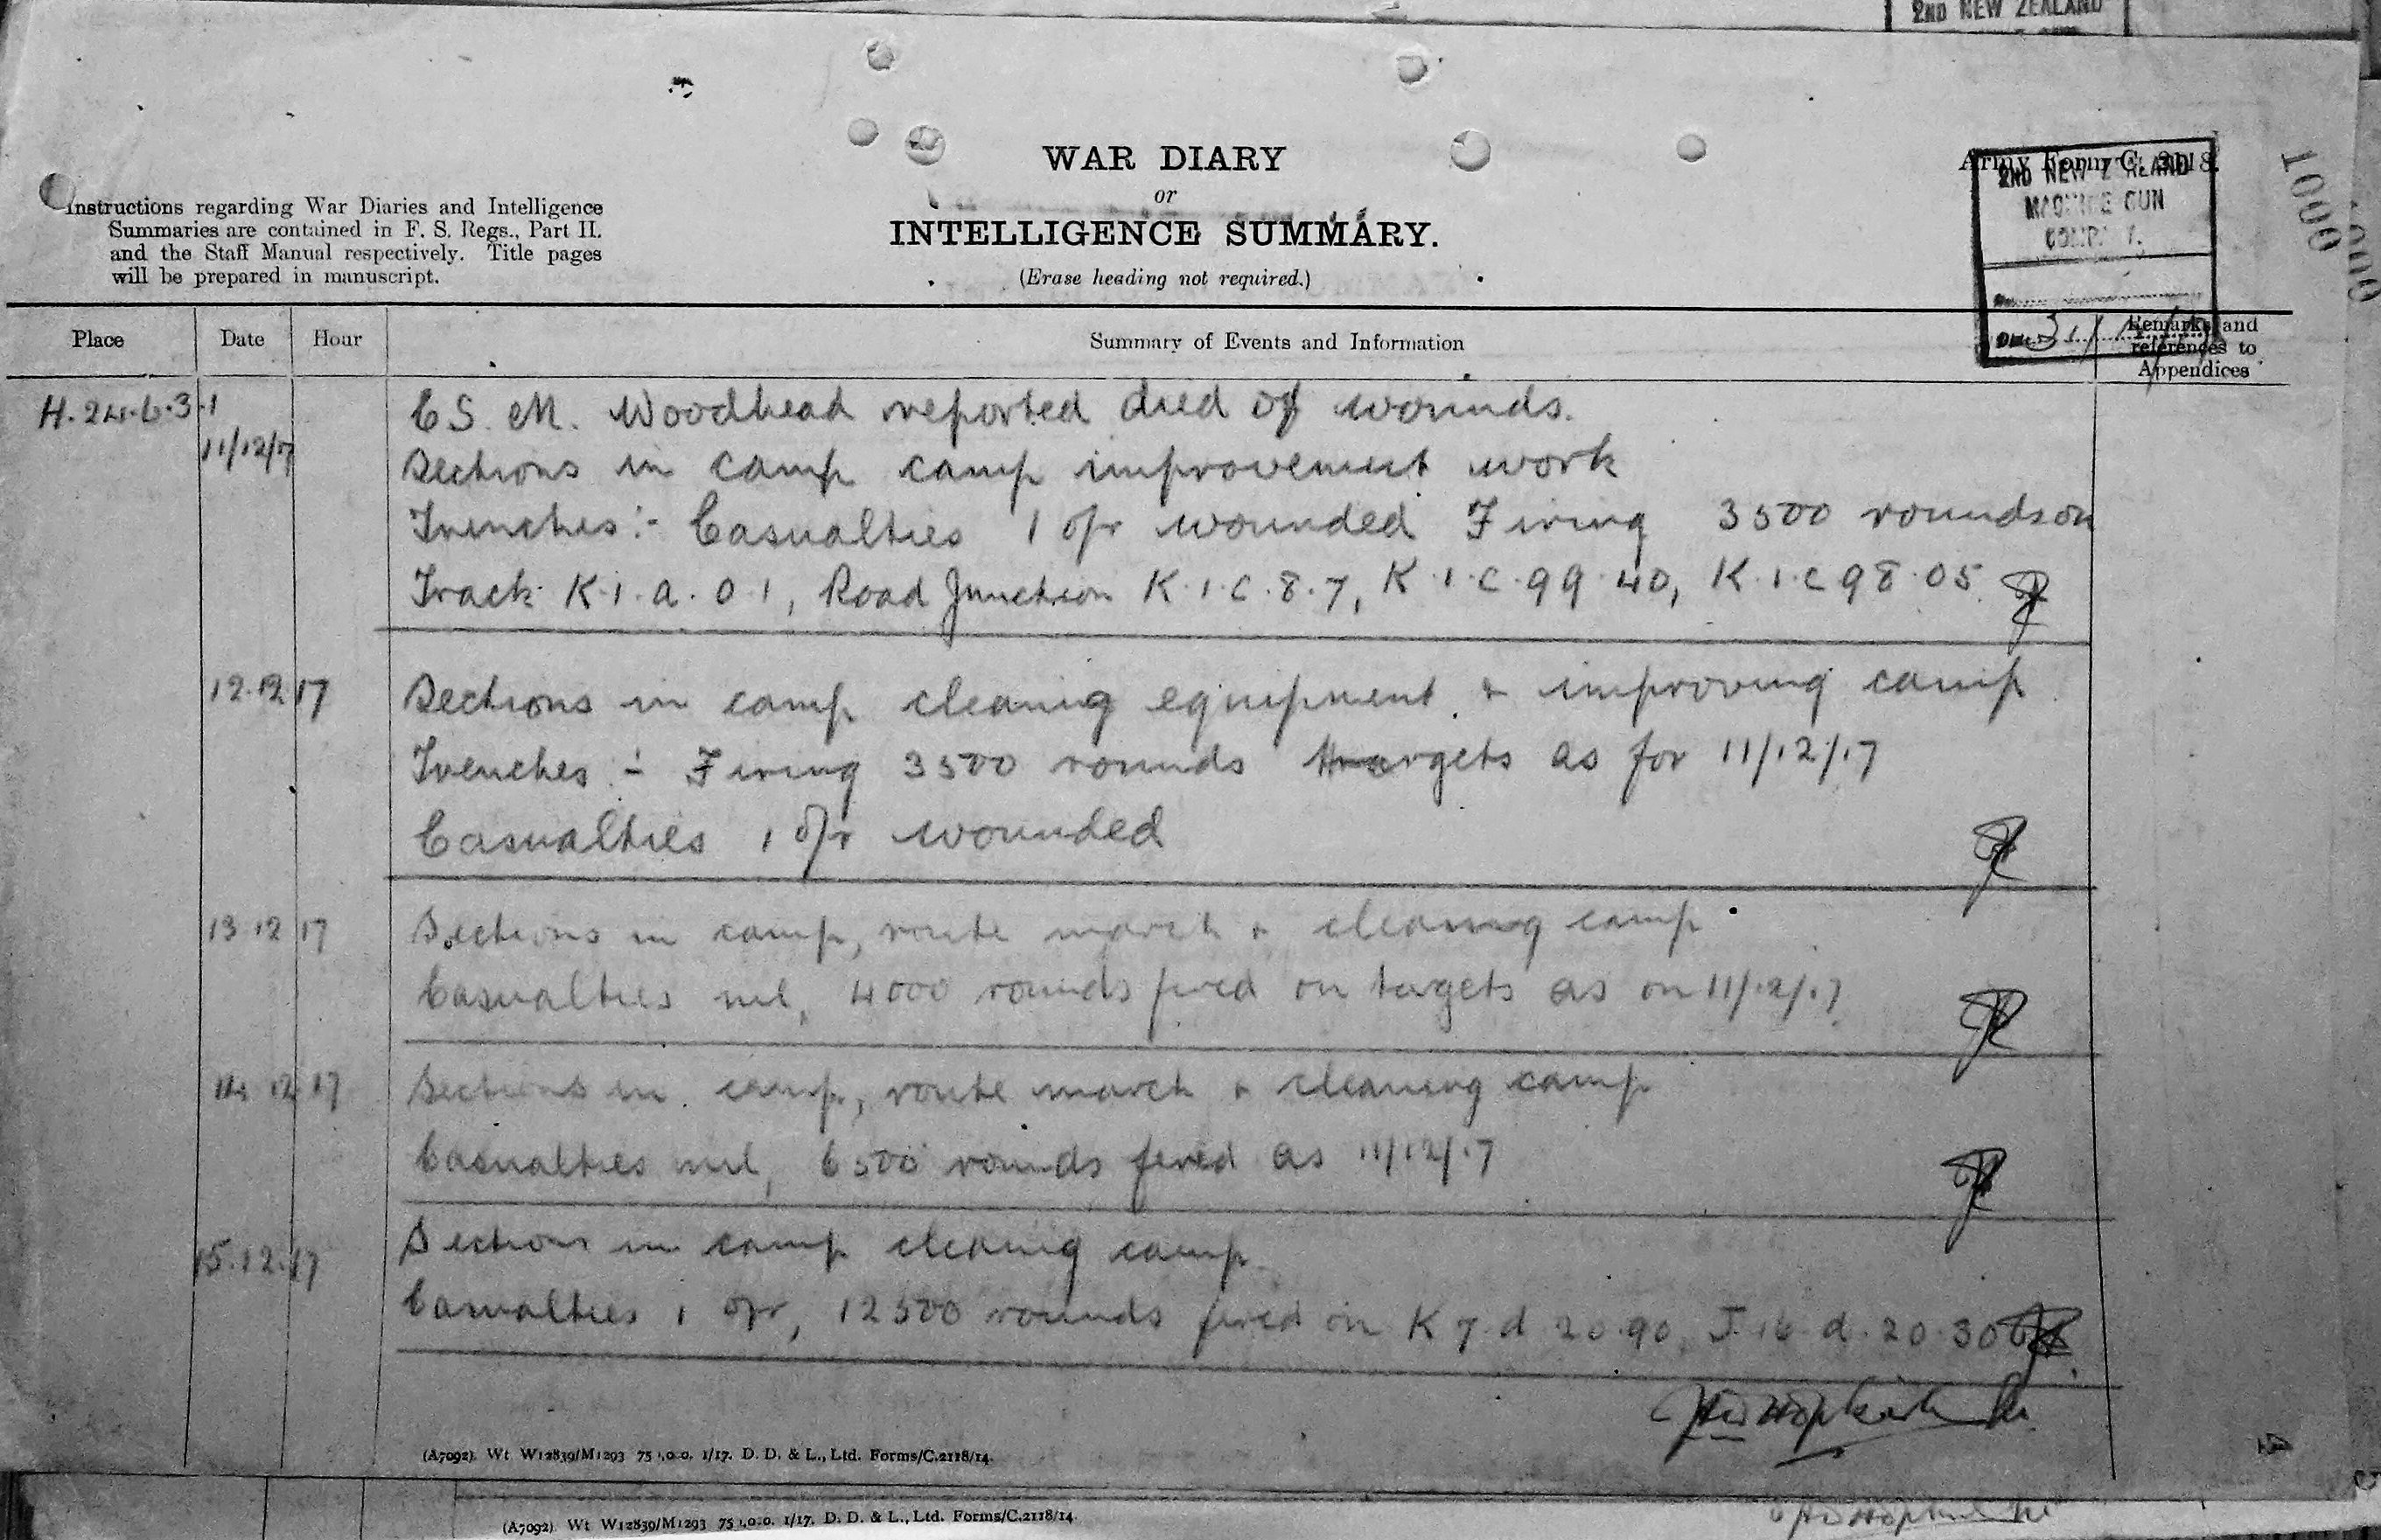 2ND NEW ZEALAND
WAR DIARY
or
INTELLIGENCE SUMMARY.
(Erase heading not required.)
Instructions regarding War Diaries and Intelligence
Summaries are contained in F. S. Regs., Part II.
and the Staff Manual respectively. Title pages
will be prepared in manuscript.
Army Form C. 2118.
2ND NEW ZEALAND
MACHINE GUN
COMPANY.
1000
1000
Place
Date
Hour
Summary of Events and Information
Remarks and
references to
Appendices
H.24.b.3.1
11/12/17
C S. M. Woodhead reported died of wounds.
Sections in camp camp improvement work
Trenches :- Casualties 1 o/r wounded Firing 3500 rounds on
Track K.1.a.0.1, Road Junction K.1.C.8.7, K.1.C.99.40, K.1.C 98.05
12.12 17
Sections in camp cleaning equipment & improving camp
Trenches :- Firing 3500 rounds targets as for 11/12/17
Casualties 1 o/r wounded
13 12 17
Sections in camp, route march & cleaning camp
Casualties nil, 4000 rounds fired on targets as on 11/12/17
14 12 17
Sections in camp, route march & cleaning camp
Casualties nil, 6500 rounds fired as 11/12/17
15.12.17
Sections in camp cleaning camp
Casualties 1 o/r, 12500 rounds fired on K 7.d 20.90, J.16.d.20.30
(A7092). Wt W12839/M1293 75 ,0.0. 1/17. D. D. & L., Ltd. Forms/C.2118/14.
(A7092). Wt W12839/M1293 75 ,0.0. 1/17. D. D. & L., Ltd. Forms/C.2118/14.